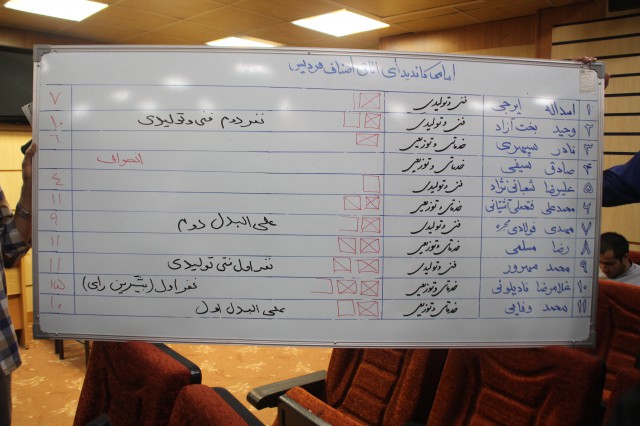 اسامی کاندیدای اتاق اصناف فردیس
۱ اسداله ایرجی فنی و تولیدی ۷
۲ وحید بخت آزاد فنی و تولیدی نفر دوم فنی و تولیدی ۱۰
۳ نادر خدماتی و توزیعی ۶
۴ صادق سیفی خدماتی و توزیعی انصراف
۵ علیرضا شعبانی نژاد فنی و تولیدی ۴
۶ محمدعلی فتحعلی آشتیانی خدماتی و توزیعی ۱۱
۷ مهدی فولادی فنی و تولیدی علی البدل دوم ۹
۸ رضا مسلمی خدماتی و توزیعی ۱۱
۹ محمد فنی و تولیدی نفر اول فنی تولیدی ۱۱
۱۰ غلامرضا خدماتی و توزیعی نفر اول (بیشترین رای) ۱۵
۱۱ محمد وفایی خدماتی و توزیعی علی البدل اول ۱۰